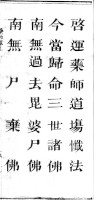 啓運藥師道場懺法
今當歸命三世諸佛
南無過去毘婆尸佛
南無尸棄佛